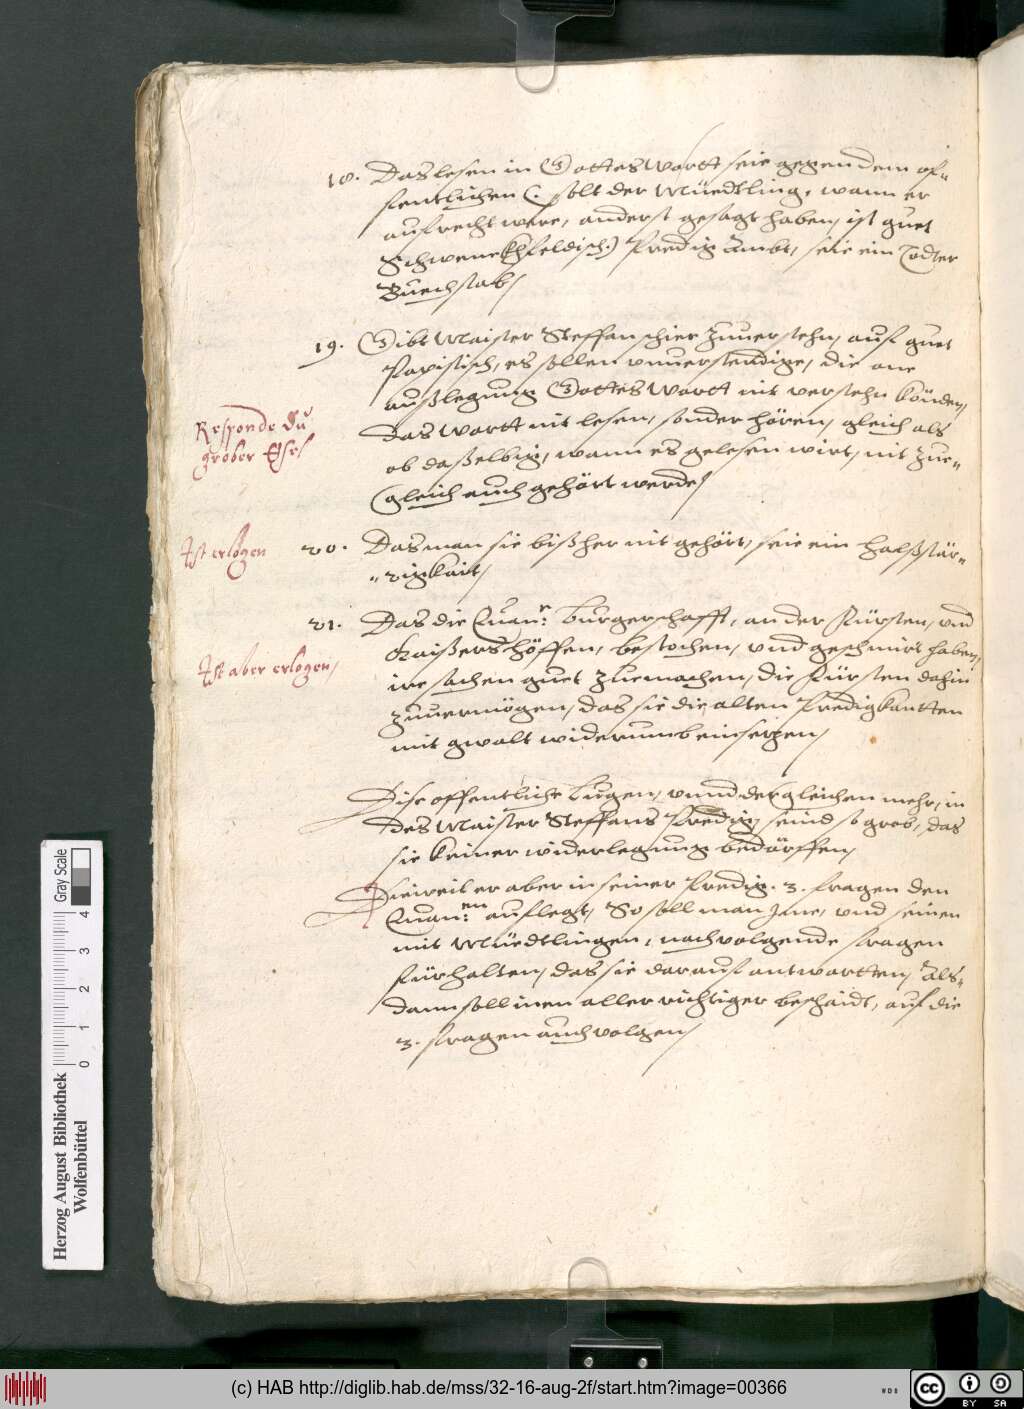 18. Das lesen in Gottes Wortt seie gegen dem of-
fentlichen (. solt der Müedtling, wann er
aufrecht were, anderst gesagt haben, ist guet
Schwenckhfeldisch.) Predig Ambt, seie ein Todter
Buechstab,
19. Gibt Maister Steffan schier zuuerstehn, auf guet
Papistisch, es sollen vnuerstendige, die one
außlegung Gottes Wortt nit verstehn könden,
Responde du
grober Esel
das Wortt nit lesen, sonder hören, gleich als
ob daßelbig, wann es gelesen wirt, nit zue-
gleich auch gehört werde,
Ist erlogen
20. Das man sie bißher nit gehört, seie ein halßstär-
rigkait,
21. Das die Quan: Burgerschafft, an der Fürsten, vnd
Kaißers höffen, bestochen, vnd geschmirt haben,
Ist aber erlogen,
ire sachen guet zuemachen, die Fürsten dahin
zuuermögen, das sie die alten Predigkantten
mit gwalt widerumb einsetzen,
Dise offentliche Lugen, vnnd dergleichen mehr, in
des Maister Steffans Predig seind so grob, das
sie keiner widerlegung bedörffen,
Dieweil er aber in seiner Predig. 3. fragen den
Quan:en auflegt, So soll man Jme, vnd seinen
mit Müedtlingen, nachvolgende fragen
fürhalten, das sie darauf antwortten, Als-
dann soll inen aller richtiger beschaidt, auf die
3. fragen auch volgen,
Herzog August Bibliothek
Wolfenbüttel
Gray Scale
0 1 2 3 4
(c) HAB http://diglib.hab.de/mss/32-16-aug-2f/start.htm?image=00366
WDB
cc BY SA